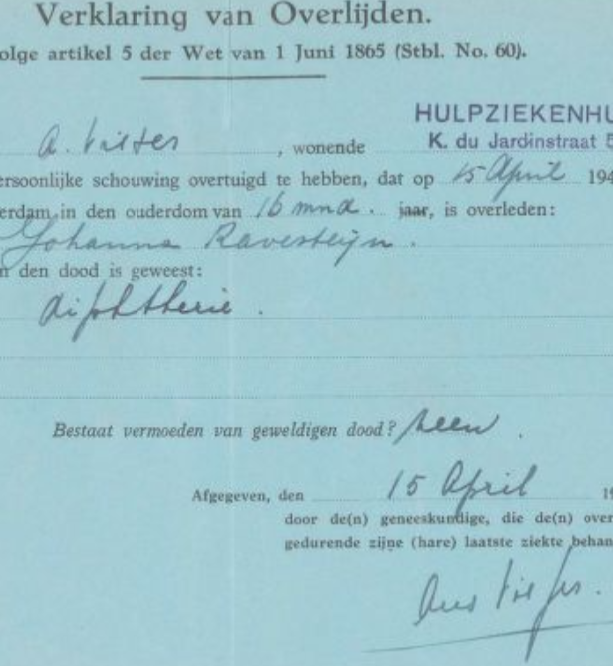 Verklaring van Overlijden.
olge artikel 5 der Wet van 1 Juni 1865 (Stbl. No. 60).
HULPZIEKENHU
A. , wonende K. du Jardinstraat 5
ersoonlijke schouwing overtuigd te hebben, dat op 15 April 194
erdam in den ouderdom van 16 mnd. jaar, is overleden:
Johanna Ravesteijn.
n den dood is geweest:
diphtherie.
Bestaat vermoeden van geweldigen dood? Neen.
Afgegeven, den 15 April 19
door de(n) geneeskundige, die de(n) over
gedurende zijne (hare) laatste ziekte behan